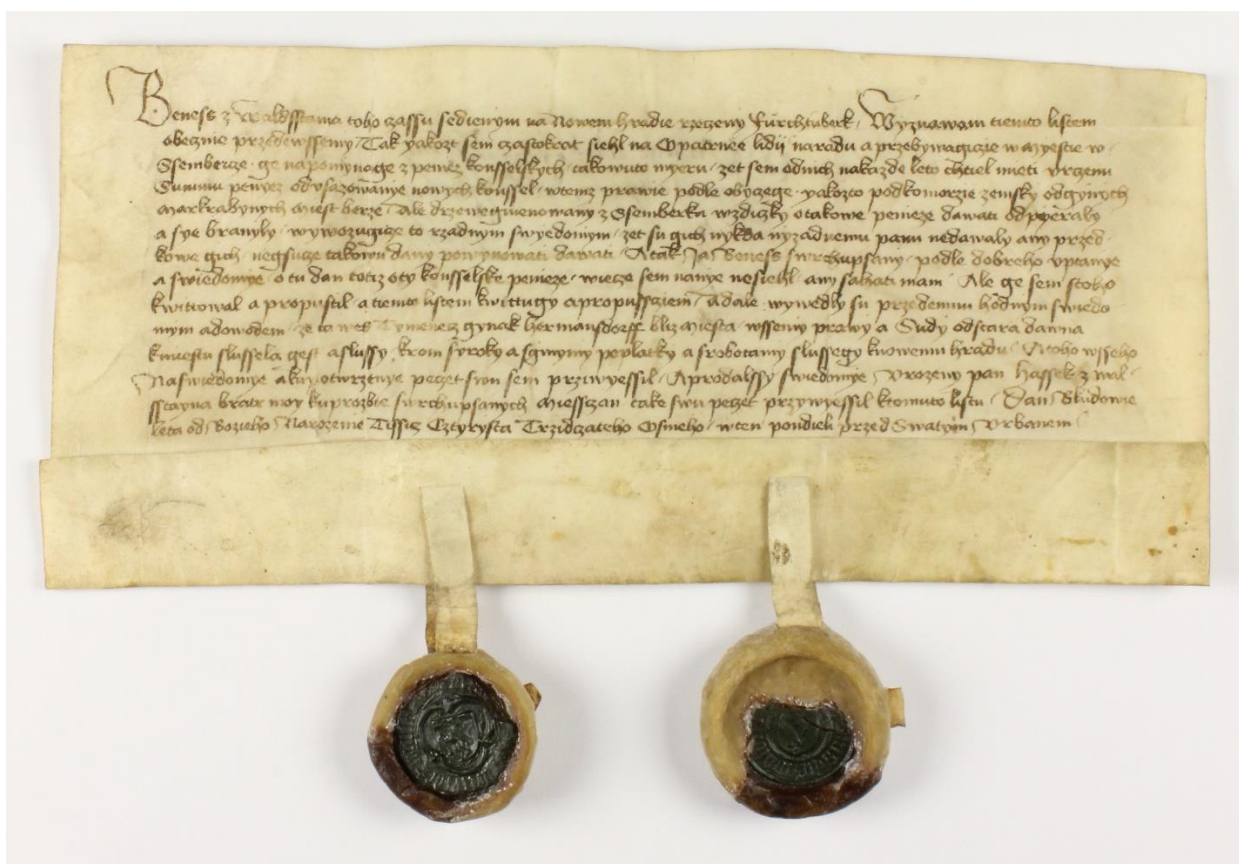 Beness z Waldsstaina toho czassu sedienym na Nowem hradie rzeczeny fürchtnberk · Wyznawam tiemto listem
obecznie przedewssemy · Tak yakozt sem czastokrat siehl na Opatrnee lidij naradu a przebywagicie w myestie w
Ssemberce · ge napomynage z peniez kousselskych takowuto myeru · zet sem odnich nakazde leto chtiel mieti vrczenu
Summu peniez od vsazowanye nowych koussel · wtemz prawie podle obyczege · yakozto podkomorzie zemsky odgynych
markrabynych miest berze · Ale drzewegmenowany z Ssemberka wzdiczky otakowe penieze dawati odpyeraly
a sye branyly · wywozugicze to rzadnym swyedomym · zet su gich nykda nyzadnemu panu nedawaly any przed
kowe gich · negsucze takowu dany powynowati dawati · A tak Ja Beness swrchupsany · podle dobreho vptanye
a swiedomye · o tu dan totiz oty kousselske penieze · wiecze sem nanye nesiehl · any sahati mam · Ale ge sem stoho
kwitowal a propustil · a tiemto listem kwittugy apropussziem · Adale wywedly su przedemnu hodnym swiedo
mym adowodem · ze ta wes Tymenecz gynak hermansdorff bliz miesta · wssemy prawy a Sudy odstara dawna
kmiestu slussela gest aslussy · krom syroky a sgmymy poplatky a srobotamy slussegy knowemu hradu · Atoho wsseho
Naswiedomye akny otwrztnye peczet swu sem przywyessil · Aprodalssy swiedomye Vrozeny pan hassek z wal-
sstayna bratr moy kuprozbie swrchupsanych miesszan take swu peczet przywyessil ktomuto listu · Dan Bludowie
leta od Bozieho Narozenie Tissicz Cztyrysta Trzidczateho Osmeho · wten pondieli przed Swatym Vrbanem ·